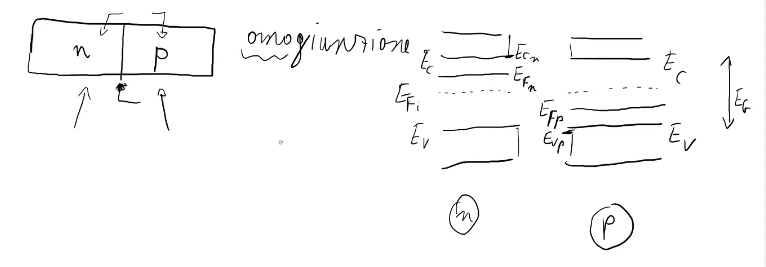 n p omogiunzione
E_C E_Cn E_C
E_Fn
E_Fi E_G
E_Fp
E_V E_Vp E_V
n p